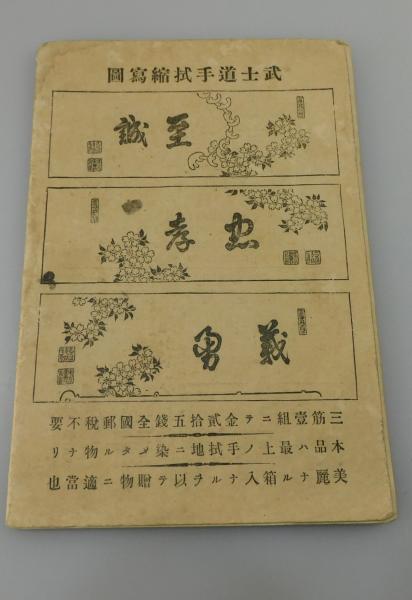 武士道手拭縮寫圖
至誠
忠孝
義勇
三筋壹組ニテ金貳拾五錢全國郵稅不要
本品ハ最上ノ手拭地ニ染メタル物ナリ
美麗ナル箱入ナルヲ以テ贈物ニ適當也